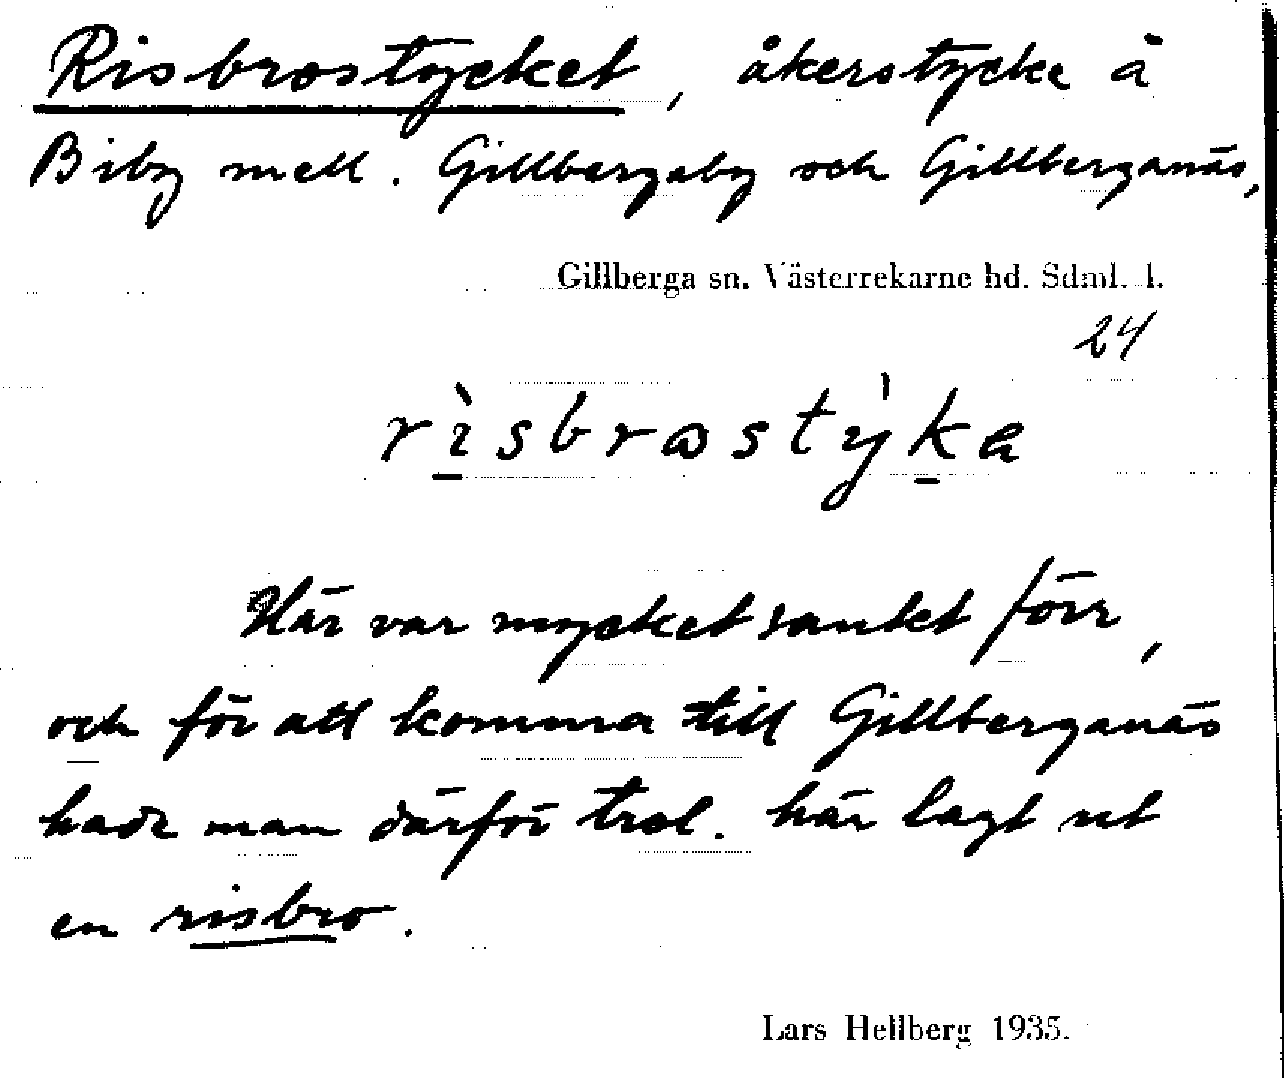 Risbrostycket, åkerstycke å
Biby mell. Gillbergaby och Gillberganäs,
Gillberga sn. Västerrekarne hd. Sdml. l.
24
rìsbrωstýka
Här var mycket sankt förr,
och för att komma till Gillberganäs
hade man därför trol. här lagt ut
en risbro.
Lars Hellberg 1935.